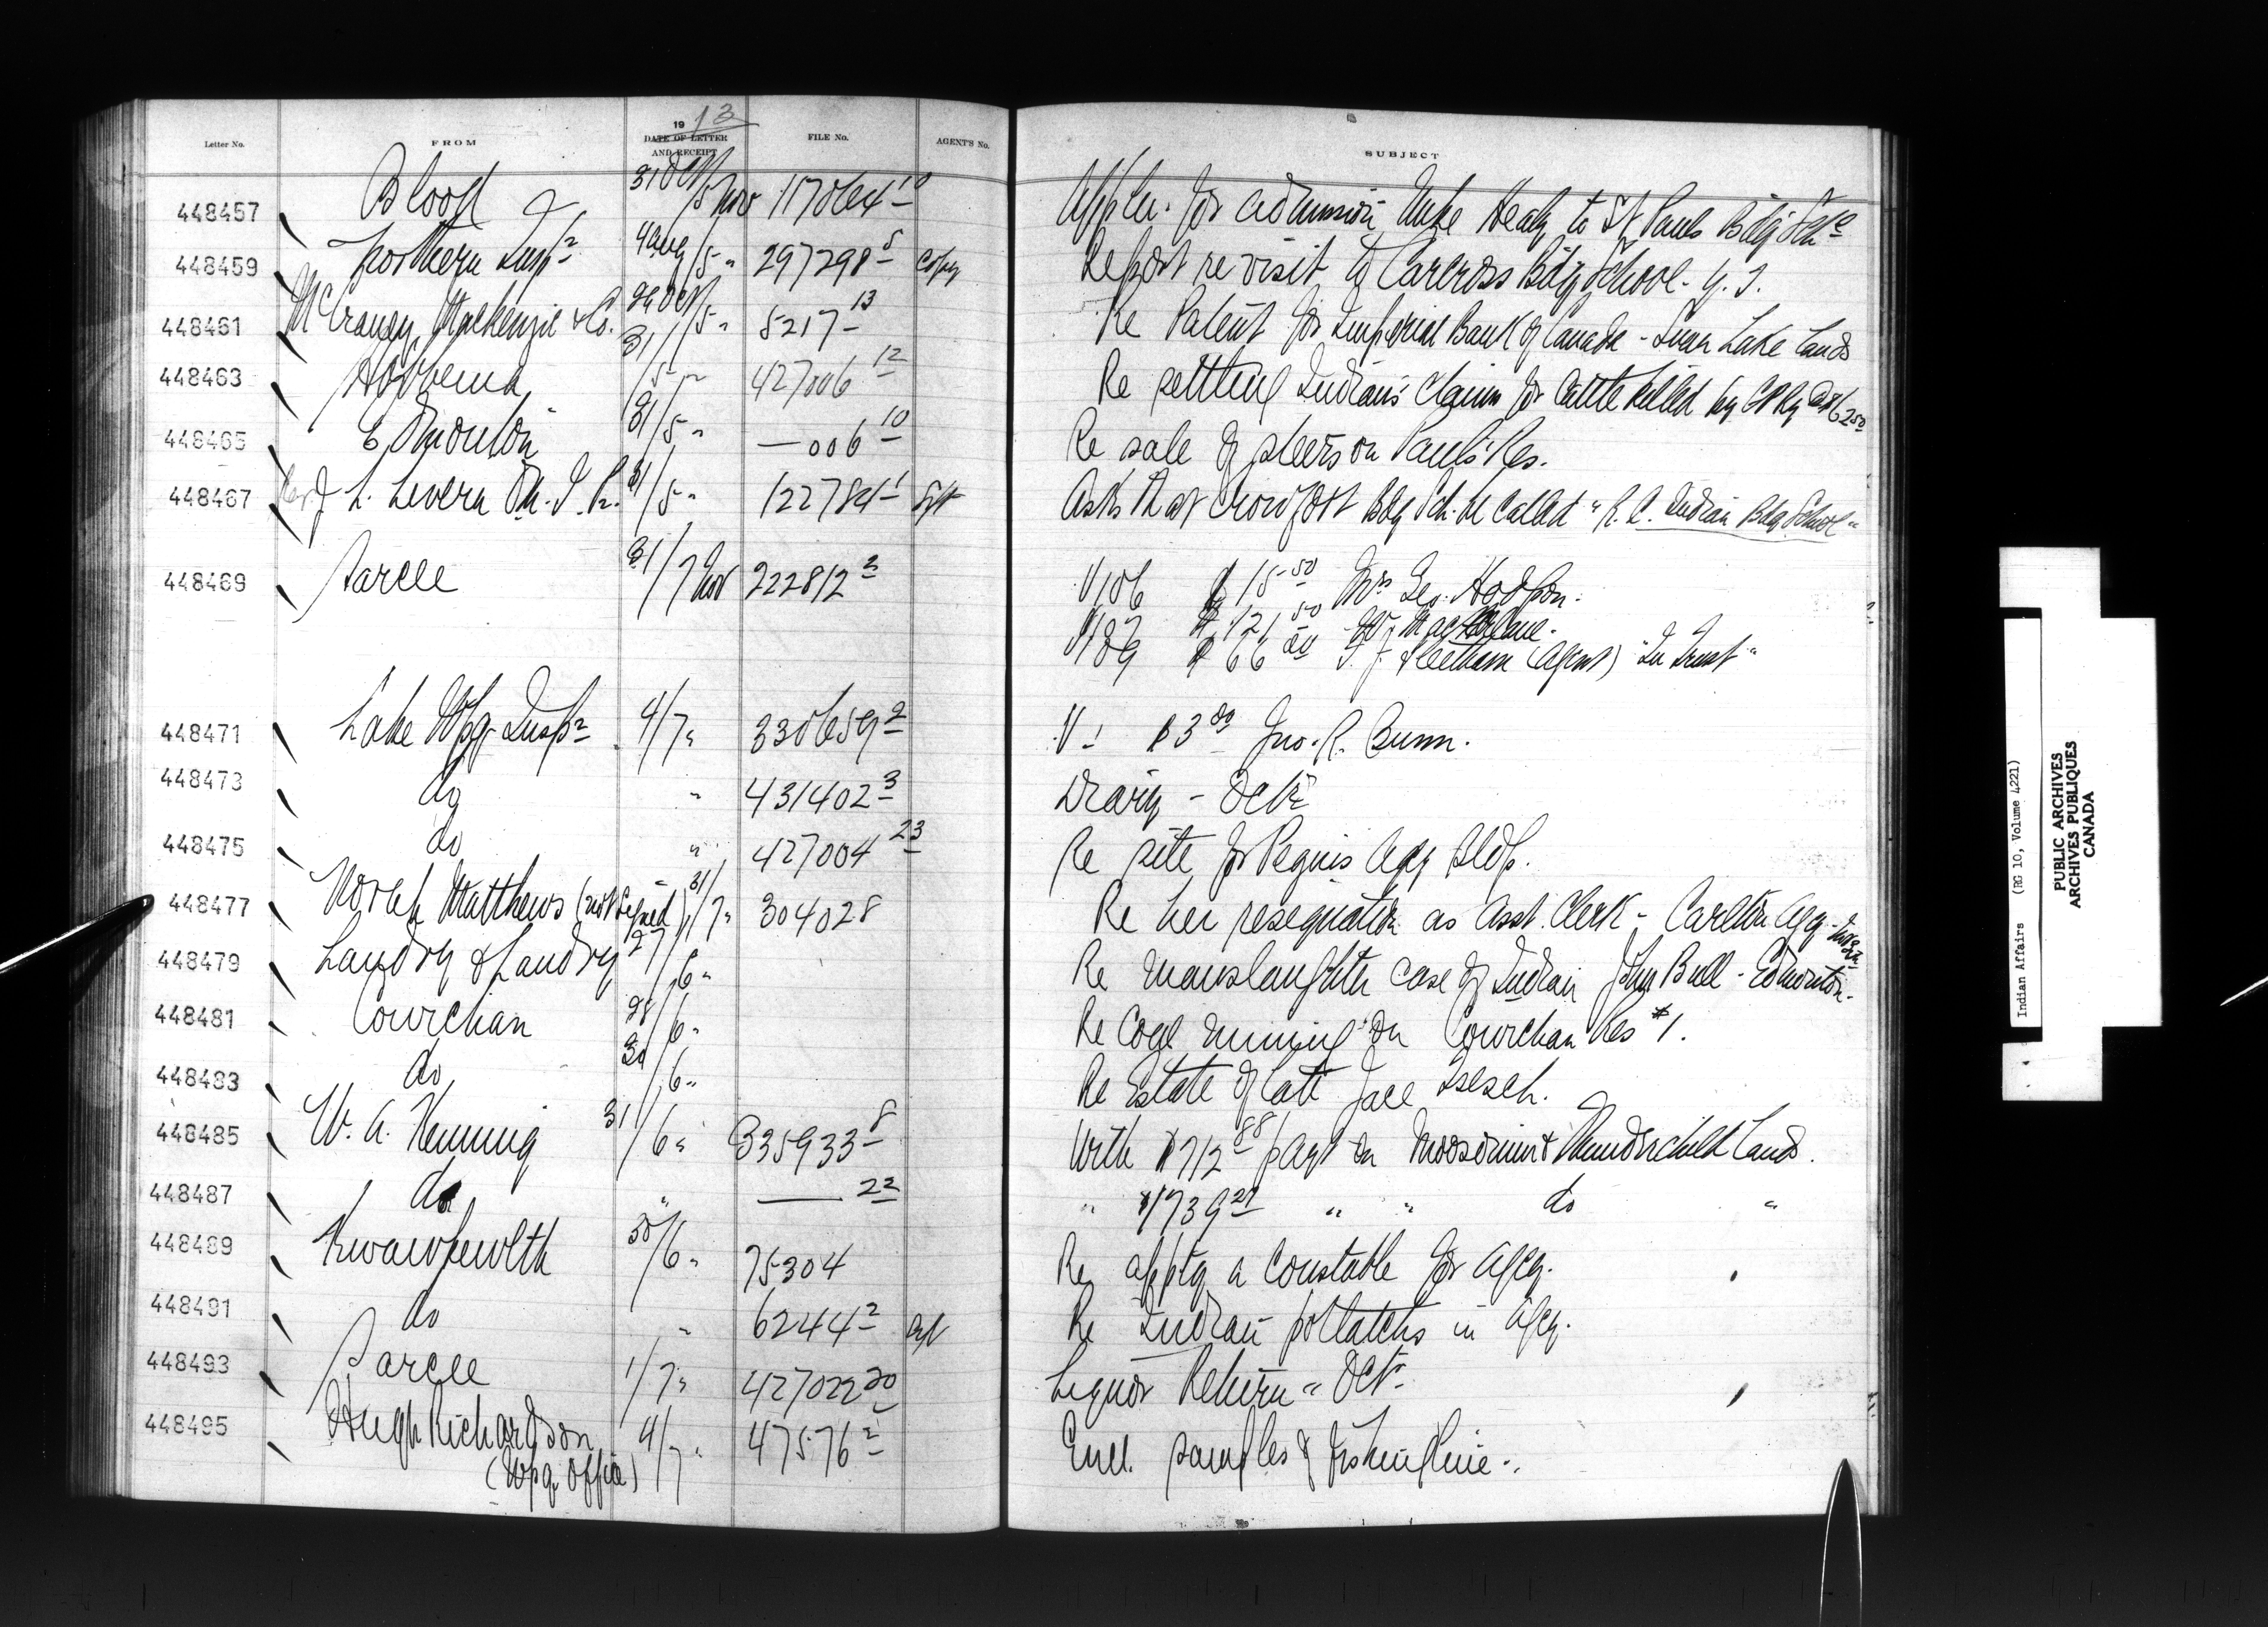 Letter No. FROM 1913 DATE OF LETTER AND RECEIPT FILE No. AGENT'S No. SUBJECT
448457 Blood 31 Oct/5 Nov 117064-10 Appln. for admission Mike Healy to St Pauls Bdg Sch
448459 Northern Insp 4 Aug/5 " 297298-5 Copy Report re visit to Carcross Bdg School - Y. T.
448461 McCraney, Mackenzie & Co. 5 " 5217-13 Re Patent for Imperial Bank of Canada - Lands
448463 Hobbema 31/5 " 427006-12 Re settling Indian's claim for cattle killed by CP Ry
448465 Edmonton 31/5 " — 006-10 Re sale of steers on Pauls Res.
448467 Revd L. Levern O.M.I. 31/5 " 122784-1 Asks that Crowfoot Bdg Sch. be called "R. C. Indian Bdg School"
448469 Sarcee 31/7 Nov 222812-3 V186 $15.50 Mrs Geo. Hodgson.
V187 $121.50
V189 $66 T. J. Fleetham (Agent) "In Trust"
448471 Lake Wpg. Insp 4/7 " 330659-2 V- $3 Jno. R. Bunn.
448473 do " 431402-3 Diary - Oct
448475 do " 427004-23 Re site for Peguis Agcy Bldg.
448477 Norah Matthews (not signed) 31/7 " 304028 Re her resignation as Asst. Clerk - Carlton Agcy
448479 Landry & Landry 27/6 " Re manslaughter case of Indian John Bull - Edmonton.
448481 Cowichan 28/6 " Re Coal mining on Cowichan Res #1.
448483 do 30/6 " Re Estate of late
448485 W. A. Henning 31/6 " 335933-8 With $712.88 payt on Moosomin & Thunderchild Lands.
448487 do " — 22 " $1739.21 " " do "
448489 Kwawkewlth 30/6 " 75304 Re apptg a Constable for Agcy.
448491 do " 6244-2 Re Indian potlatchs in Agcy.
448493 Sarcee 1/7 " 427022-20 Liquor Return - Oct
448495 Hugh Richardson 4/7 " 47576-2 Encl. samples of
(Wpg. Office)
Indian Affairs (RG 10, Volume 4221)
PUBLIC ARCHIVES
ARCHIVES PUBLIQUES
CANADA